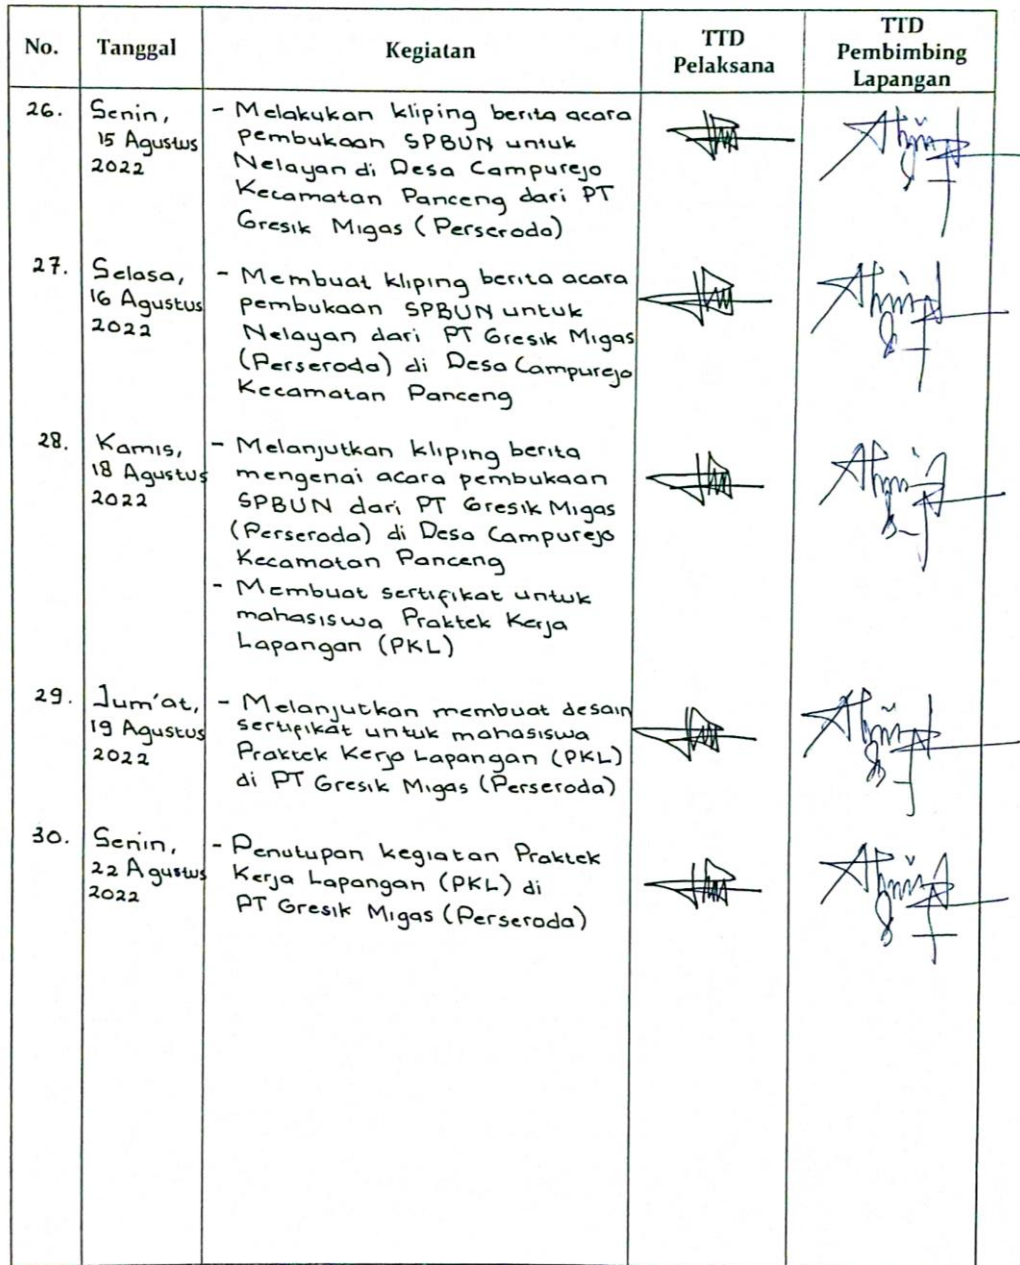 No. Tanggal Kegiatan TTD Pelaksana TTD Pembimbing Lapangan
26. Senin, 15 Agustus 2022
- Melakukan kliping berita acara
pembukaan SPBUN untuk
Nelayan di Desa Campurejo
Kecamatan Panceng dari PT
Gresik Migas (Perseroda)
27. Selasa, 16 Agustus 2022
- Membuat kliping berita acara
pembukaan SPBUN untuk
Nelayan dari PT Gresik Migas
(Perseroda) di Desa Campurejo
Kecamatan Panceng
28. Kamis, 18 Agustus 2022
- Melanjutkan kliping berita
mengenai acara pembukaan
SPBUN dari PT Gresik Migas
(Perseroda) di Desa Campurejo
Kecamatan Panceng
- Membuat sertifikat untuk
mahasiswa Praktek Kerja
Lapangan (PKL)
29. Jum'at, 19 Agustus 2022
- Melanjutkan membuat desain
sertifikat untuk mahasiswa
Praktek Kerja Lapangan (PKL)
di PT Gresik Migas (Perseroda)
30. Senin, 22 Agustus 2022
- Penutupan kegiatan Praktek
Kerja Lapangan (PKL) di
PT Gresik Migas (Perseroda)